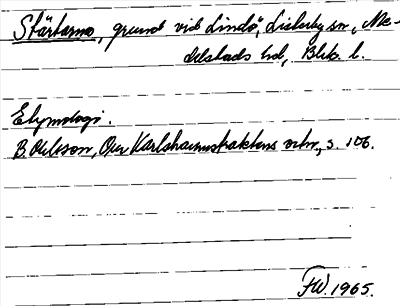 Stärtarna, grund vid Lindö, Listerby sn, Me-
delstads hd, Blek. l.
Etymologi.
B. Olsson, Om Karlshamnstraktens ortn., s. 106.
FW. 1965.